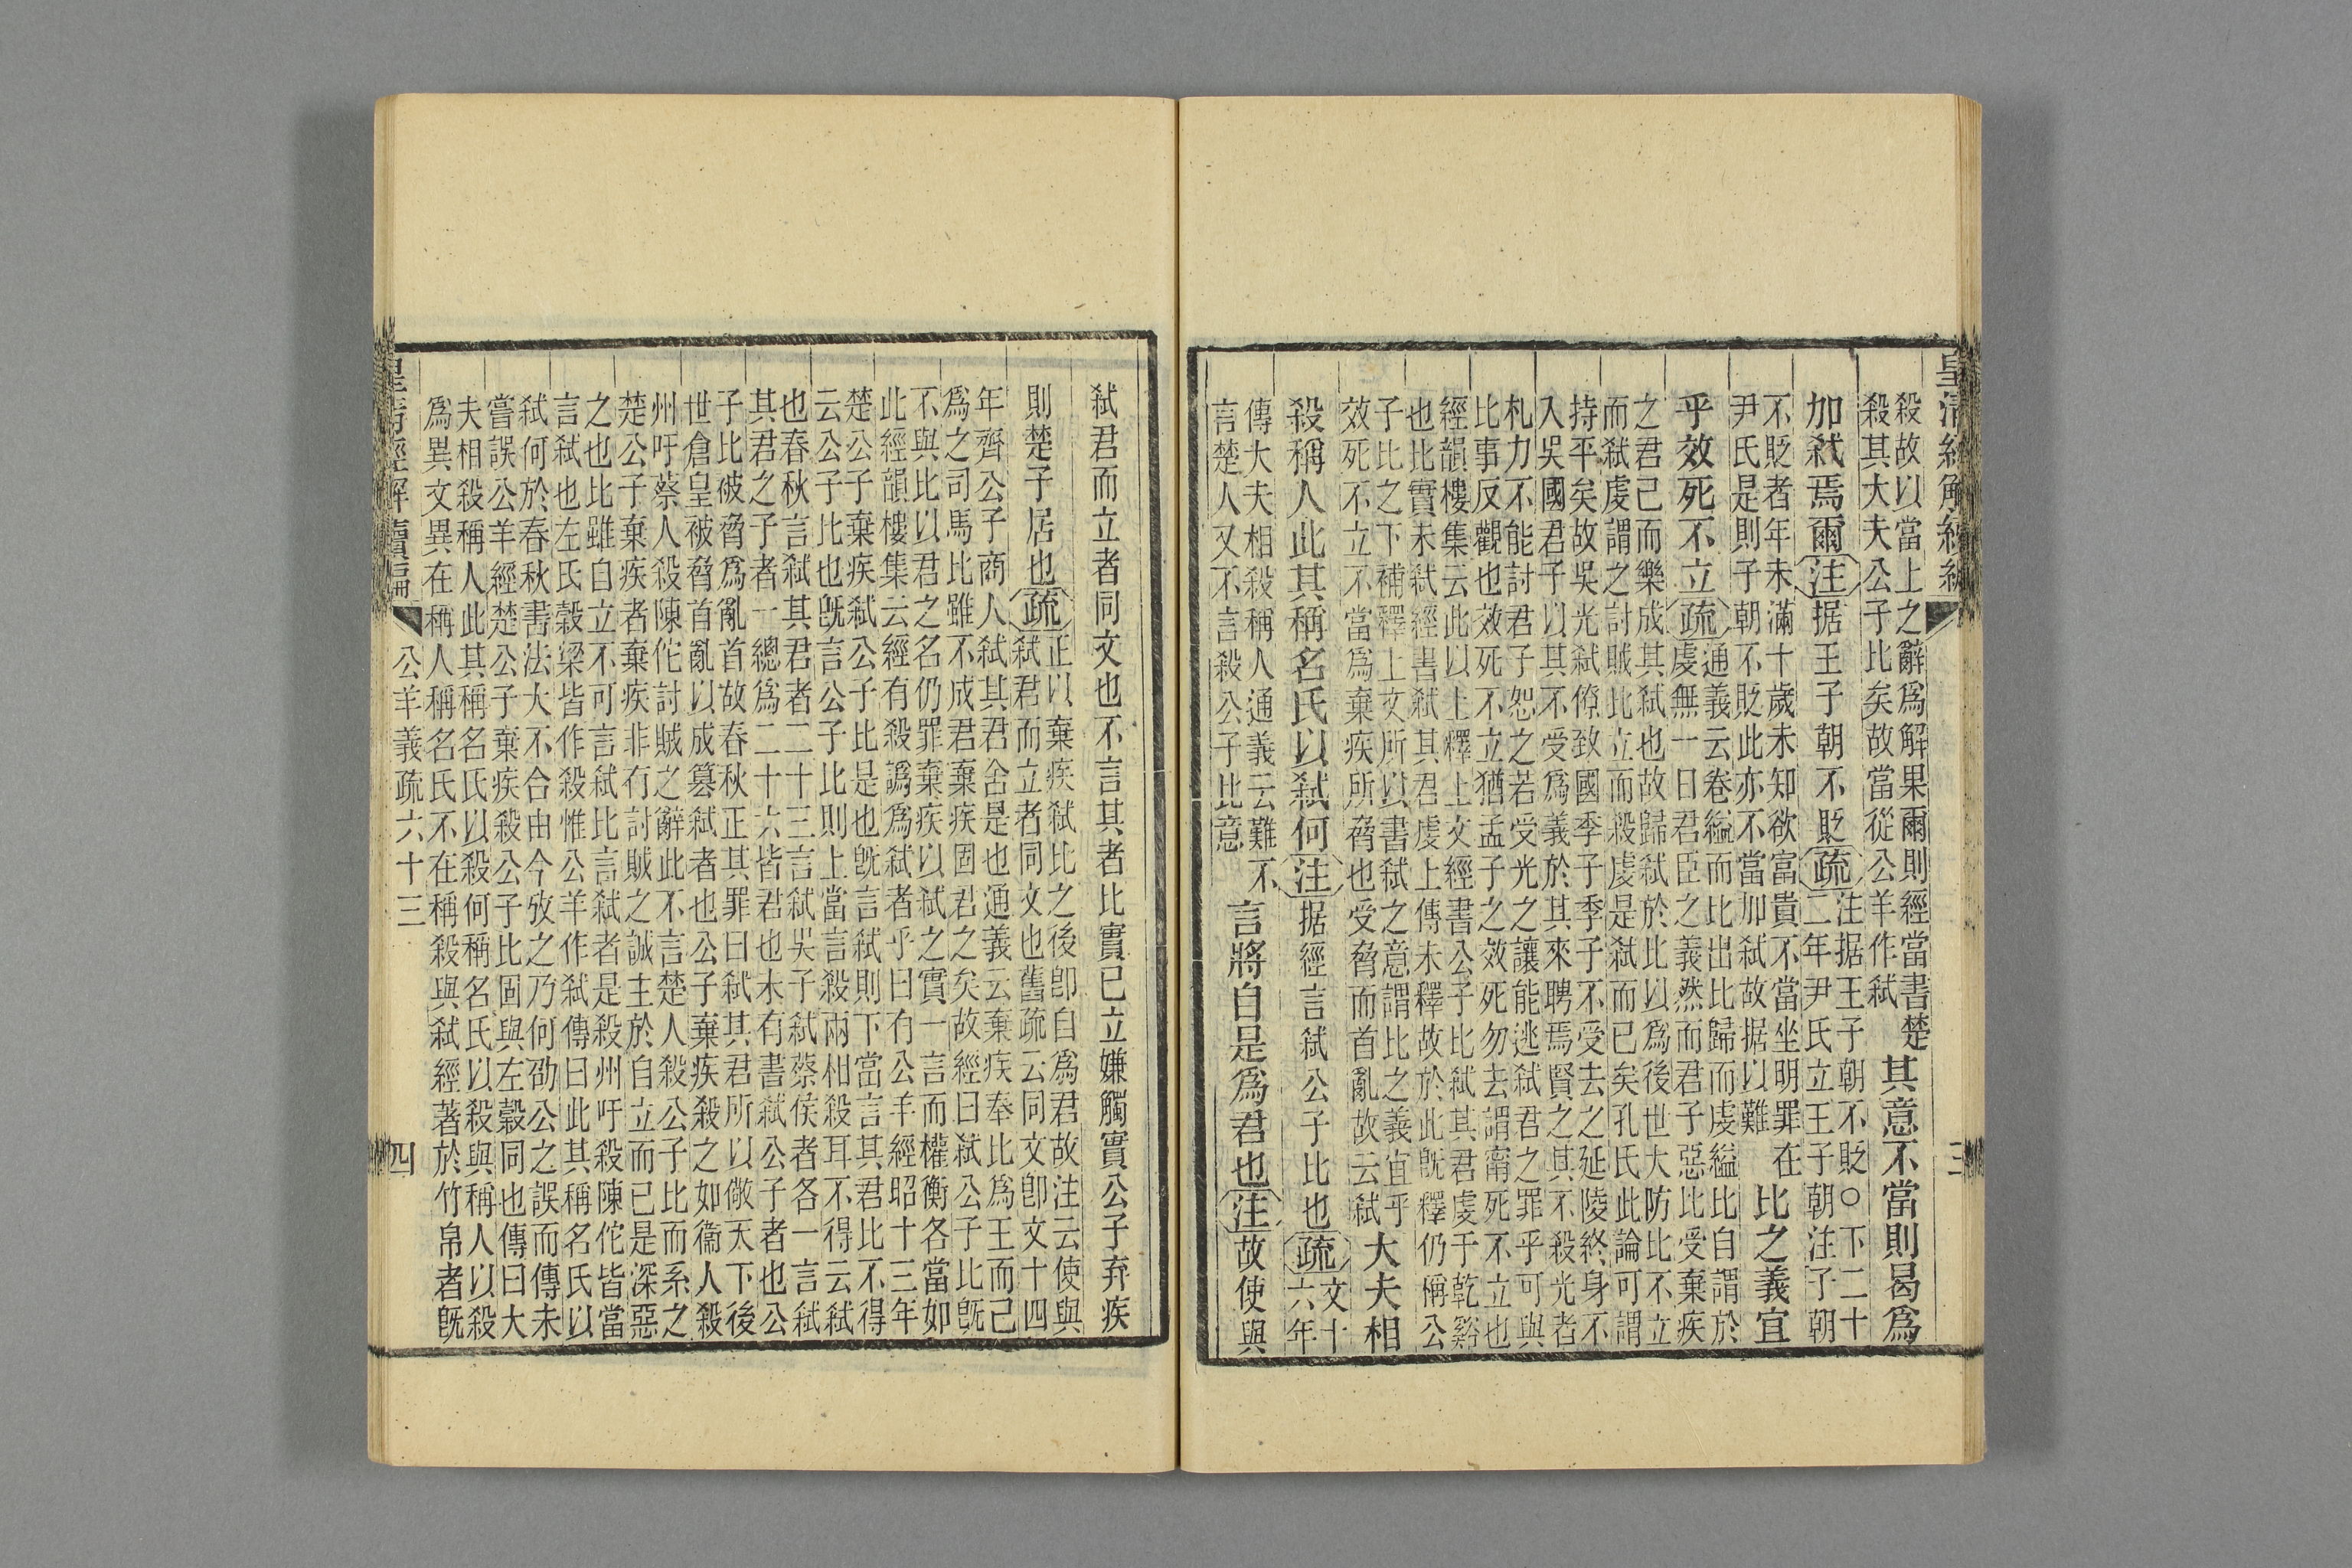 皇清經解續編
殺故以當上之辭爲解果爾則經當書楚
殺其大夫公子比矣故當從公羊作弒
其意不當則曷爲
加弒焉爾注据王子朝不貶疏
注据王子朝不貶○下二十
二年尹氏立王子朝注子朝
不貶者年未滿十歲未知欲富貴不當坐明罪在
尹氏是則子朝不貶此亦不當加弒故据以難
比之義宜
乎效死不立疏
通義云卷縊而比出比歸而虔縊比自謂於
虔無一日君臣之義然而君子惡比受棄疾
之君已而樂成其弒也故歸弒於比以爲後世大防比不立
而弒虔謂之討賊比立而殺虔是弒而已矣孔氏此論可謂
持平矣故吳光弒僚致國季子季子不受去之延陵終身不
入吳國君子以其不受爲義於其來聘焉賢之其不殺光者
札力不能討君子恕之若受光之讓能逃弒君之罪乎可與
比事反觀也效死不立猶孟子之效死勿去謂甯死不立也
經韻樓集云此以上釋上文經書公子比弒其君虔于乾谿
也比實未弒經書弒其君虔上傳未釋故於此旣釋仍稱公
子比之下補釋上文所以書弒之意謂比之義宜乎
效死不立不當爲棄疾所脅也受脅而首亂故云弒
大夫相
殺稱人此其稱名氏以弒何注据經言弒公子比也疏
文十
六年
傳大夫相殺稱人通義云難不
言楚人又不言殺公子比意
言將自是爲君也注故使與
三
弒君而立者同文也不言其者比實已立嫌觸實公子弃疾
則楚子居也疏
正以棄疾弒比之後卽自爲君故注云使與
弒君而立者同文也舊疏云同文卽文十四
年齊公子商人弒其君舍是也通義云棄疾奉比爲王而己
爲之司馬比雖不成君棄疾固君之矣故經曰弒公子比旣
不與比以君之名仍罪棄疾以弒之實一言而權衡各當如
此經韻樓集云經有殺譌爲弒者乎曰有公羊經昭十三年
楚公子棄疾弒公子比是也旣言弒則下當言其君比不得
云公子比也旣言公子比則上當言殺兩相殺耳不得云弒
也春秋言弒其君者二十三言弒吳子弒蔡侯者各一言弒
其君之子者一總爲二十六皆君也未有書弒公子者也公
子比破脅爲亂首故春秋正其罪曰弒其君所以儆天下後
世倉皇被脅首亂以成篡弒者也公子棄疾殺之如衞人殺
州吁蔡人殺陳佗討賊之辭此不言楚人殺公子比而系之
楚公子棄疾者棄疾非有討賊之誠主於自立而已是深惡
之也比雖自立不可言弒比言弒者是殺州吁殺陳佗皆當
言弒也左氏穀梁皆作殺惟公羊作弒傳曰此其稱名氏以
弒何於春秋書法大不合由今攷之乃何劭公之誤而傳未
嘗誤公羊經楚公子棄疾殺公子比固與左穀同也傳曰大
夫相殺稱人此其稱名氏以殺何稱名氏以殺與稱人以殺
爲異文異在稱人稱名氏不在稱殺與弒經著於竹帛者旣
皇清經解續編
公羊義疏六十三
四